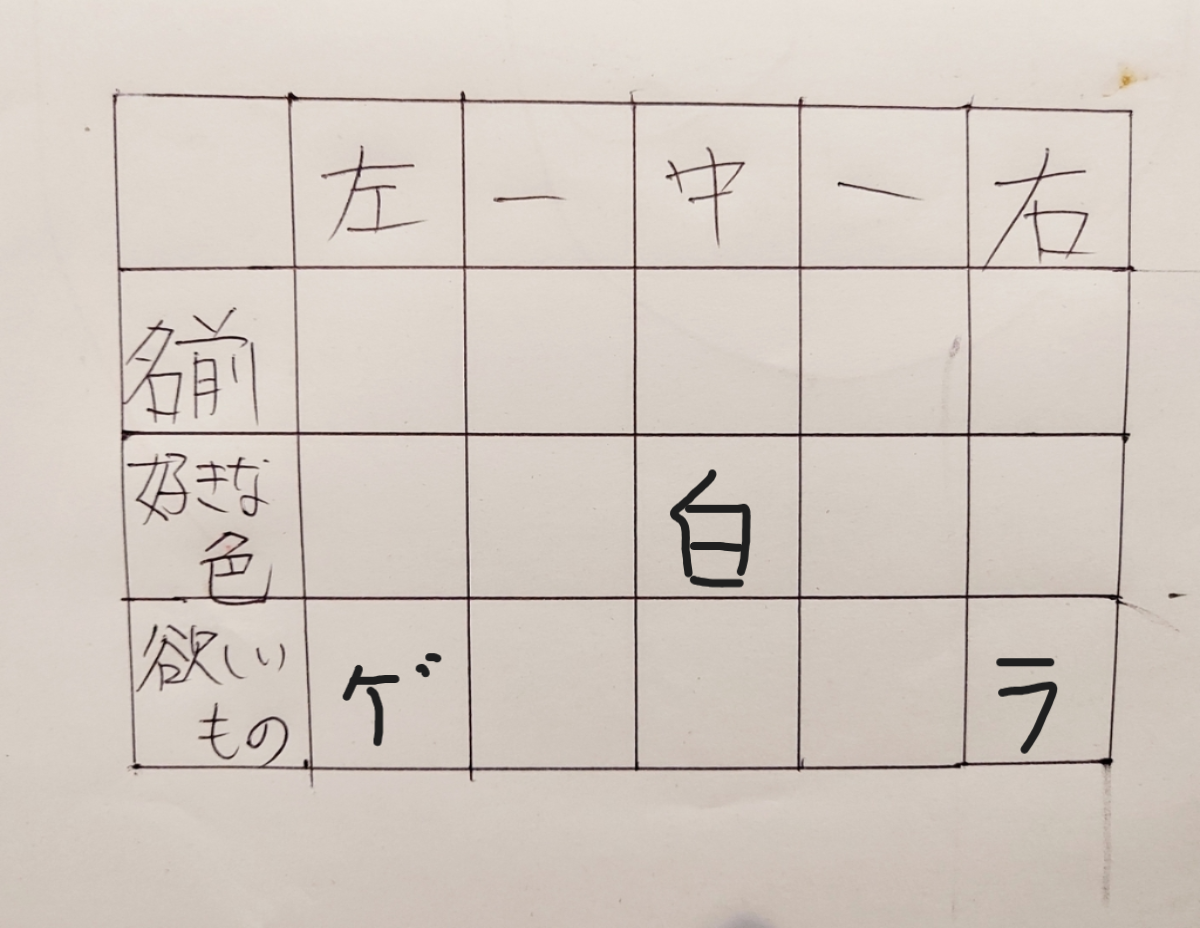 左 ー 中 ー 右
名前
好きな
色
白
欲しい
もの
ゲ
ラ